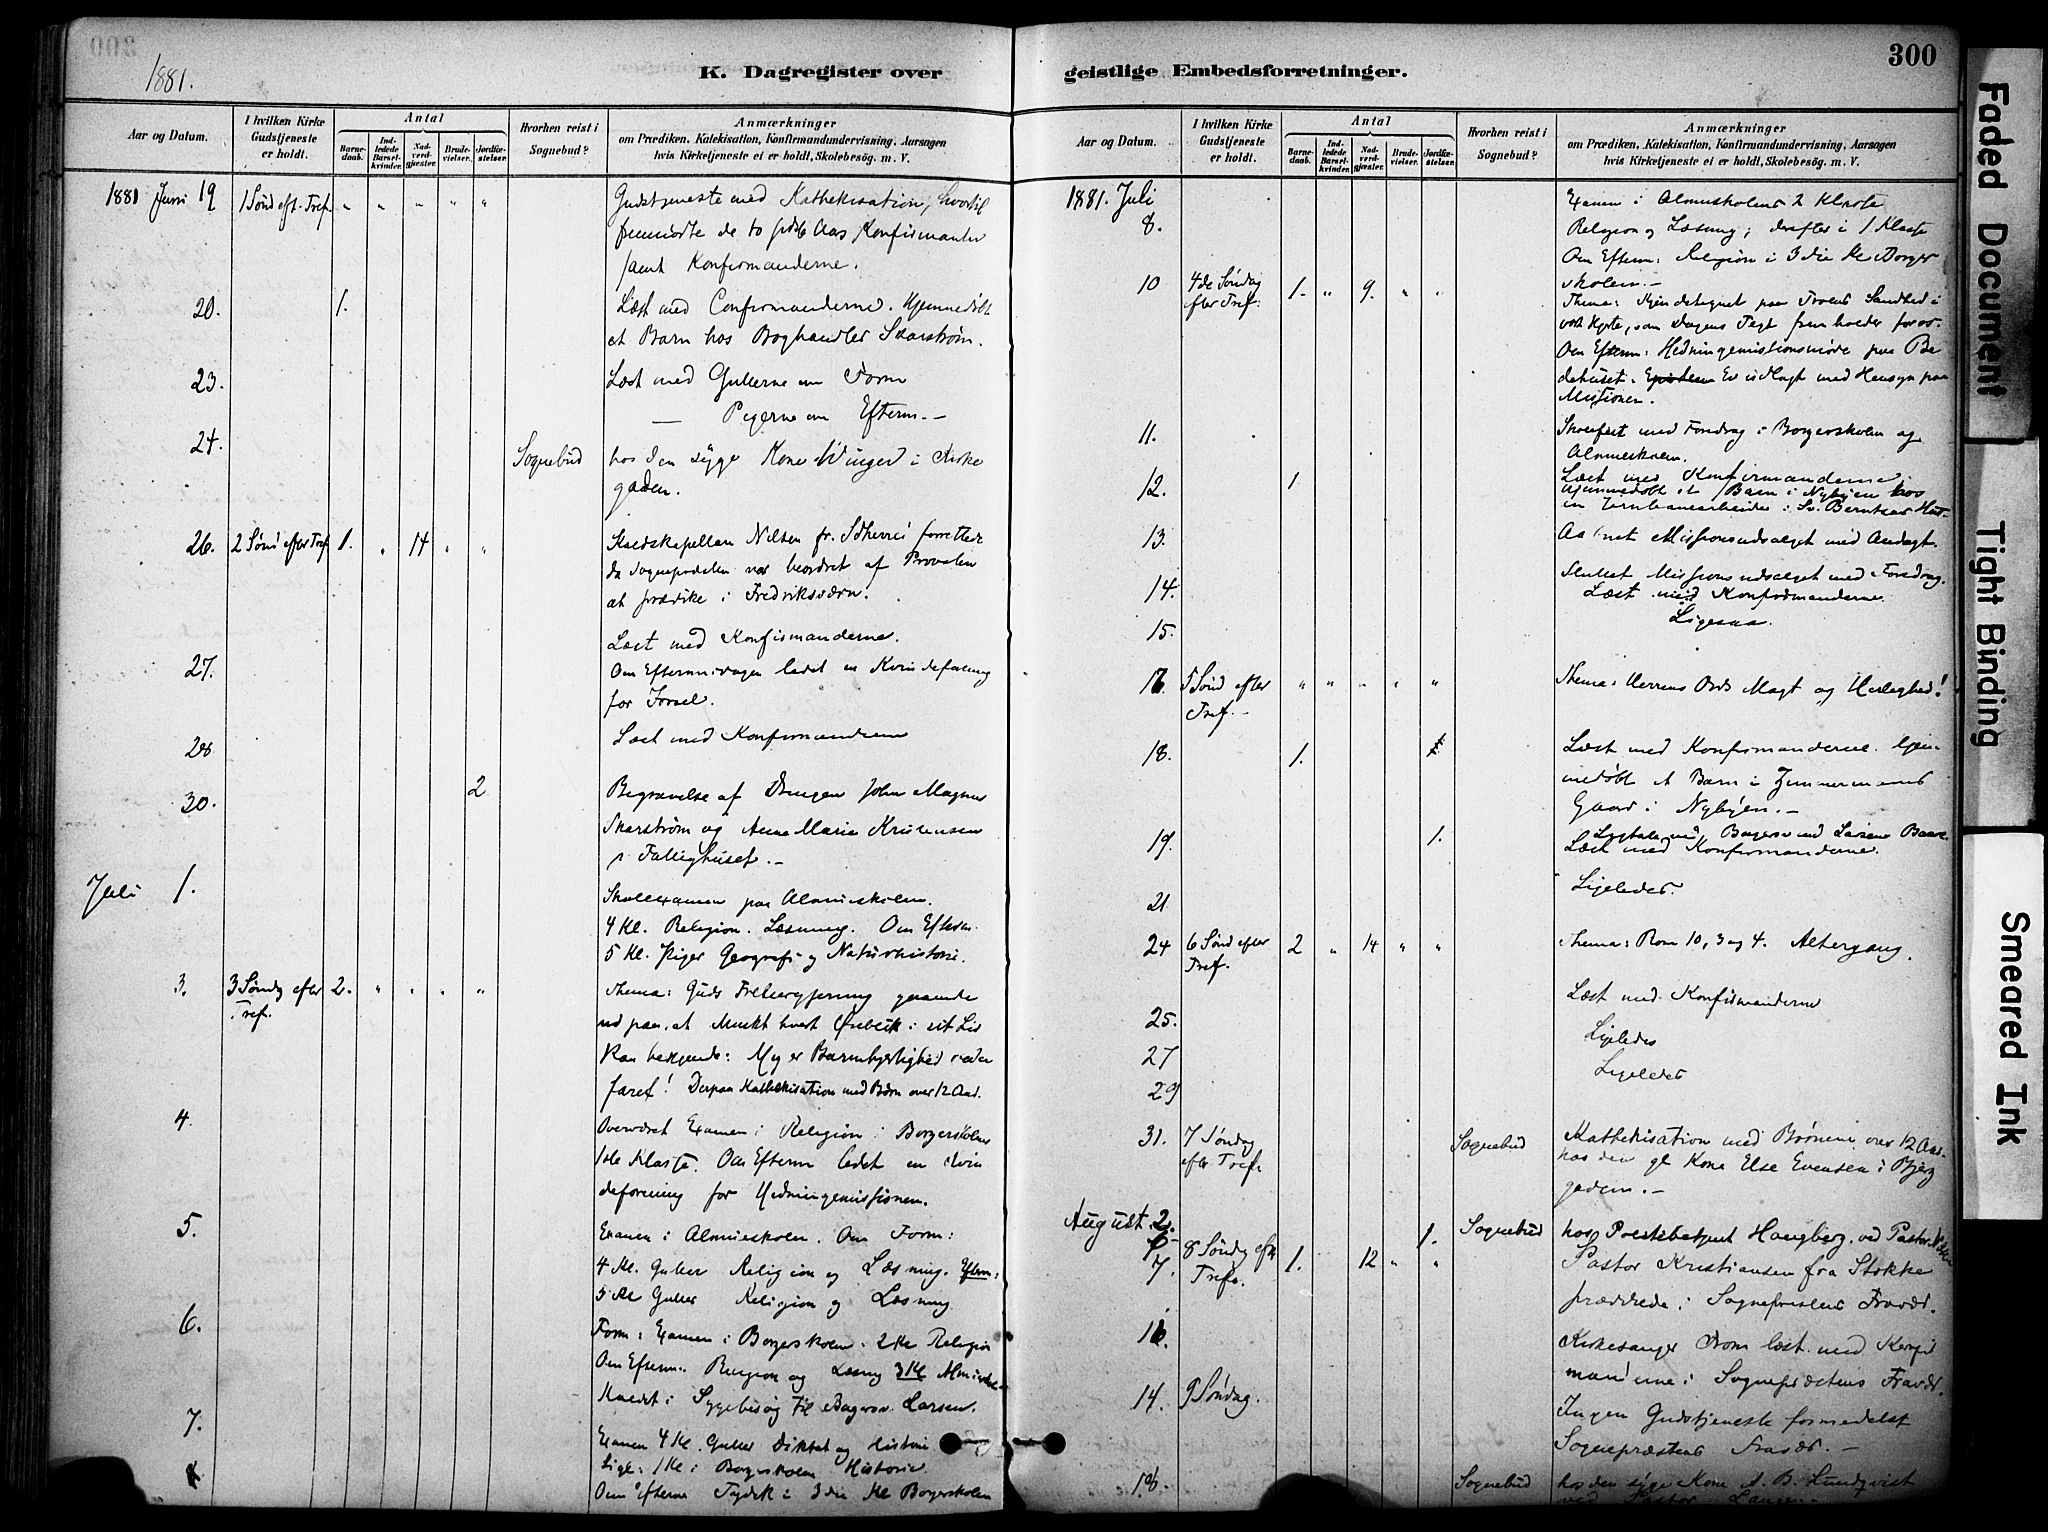 1881.
K. Dagregister over
Aar og Datum.
I hvilken Kirke Gudstjeneste er holdt.
Antal
Barnedaab.
Indledede Barselkvinder.
Nadverdgjester.
Brudevielser.
Jordfæstelser.
Hvorhen reist i Sognebud?
Anmærkninger
om Prædiken, Katekisation, Konfirmandundervisning, Aarsagen
hvis Kirketjeneste ei er holdt, Skolebesøg. m. V.
1881 Juni 19 1 Sønd eft. Tref. " " " " " Gudstjeneste med Kathekisation, hvortil
fremmødte de to sidste Aars Konfirmanter
samt Konfirmanderne.
20. 1. Læst med Confirmanderne. Hjemmedøbt
et Barn hos Boghandler Skarstrøm.
23. Læst med Gutterne om Form
— Pigerne om Efterm. -
24. Sognebud hos den syge Kone Winger i Kirke
gaden.
26. 2 Sønd efter Tref 1. " 14 " " Nilsen forrettede
da Sognepræsten var beordret af Provsten
at prædike i Fredriksværn.
Læst med Konfirmanderne.
27. Om Eftermiddagen ledet en Kvindeforening
for
28 Læst med Konfirmanderne
30. 2 Begravelse af Drengen John Magnus
Skarstrøm og Anna Marie Kristensen
i Fattighuset. -
Juli 1. Skoleexamen paa Almueskolen.
4 Kl. Religion. Læsning. Om Efterm.
5 Kl. Piger Geografi og Naturhistorie.
3. 3 Søndg efter Tref. 2. " " " " Thema: Guds Frelsergjerning gaaende
ud paa, at hvert i sit Liv
kan bekjende: Mig er Barmhjertighed veder
faret! Derpaa Kathekisation med Børn over 12 Aar.
4. Overværet Examen i Religion i Borgerskolens
1ste Klasse. Om Efterm ledet en Kvin
deforening for Hedningemissionen.
5. Examen i Almueskolen. Om Form:
4 Kl. Gutter Religion og Læsning. Efterm:
5 Kl Gutter Religion og Læsning
6. Form: Examen i Borgerskolen. 2 Kl Religion
Om Efterm. Religion og Læsning 3 Kl Almueskol
Kaldet i Sygebesøg til Larsen.
7. Examen 4 Kl. Gutter Diktat og Historie
Lige: 1 Kl i Borgerskolen Historie.
Om Efterm Tydsk i 3 die Kl Borgerskolen
300
geistlige Embedsforretninger.
Aar og Datum.
I hvilken Kirke Gudstjeneste er holdt.
Antal
Barnedaab.
Indledede Barselkvinder.
Nadverdgjester.
Brudevielser.
Jordfæstelser.
Hvorhen reist i Sognebud?
Anmærkninger
om Prædiken, Katekisation, Konfirmandundervisning, Aarsagen
hvis Kirketjeneste ei er holdt, Skolebesøg. m. V.
1881. Juli
8. Examen i Almueskolens 2 Klasse
Religion og Læsning; derefter i 1 Klasse
Om Efterm: Religion i 3 die Kl Borger
skolen. -
10 4de Søndag efter Tref. 1. " 9. " " Thema: Kjendetegnet paa Troens Sandhed i
vort Hjerte, som Dagens Text fremholder for os.
Om Efterm: Hedningemissionsmøde paa Be
dehuset. med Hensyn paa
Missionen.
11. Skolefest med Foredrag i Borgerskolen og
Almueskolen.
12. 1 Læst med Konfirmanderne.
Hjemmedøbt et Barn i Nybyen hos
en Jernbanearbeider i Sv. Berntsens Hus.
13. Aabnet Missionsudsalget med Andagt.
14. Sluttet Missionsudsalget med Foredrag.
Læst med Konfirmanderne.
15. Ligesaa.
16. 5 Sønd efter Tref. - " " " " " Thema: Herrens Ords Magt og Herlighed!
18. 1. Læst med Konfirmanderne. Hjem
medøbt et Barn i Zimmermans
Gaard i Nybyen. -
19. 1. Larsens Baare
Læst med Konfirmanderne.
21 Ligeledes.
24 6 Sønd efter Tref. 2 " 14 " " Thema: Rom 10, 3 og 4. Altergang.
25. Læst med Konfirmanderne
27 Ligeledes
29 Ligeledes
31. 7 Søndag efter Tref. Sognebud Kathekisation med Børnene over 12 Aar.
hos den gl Kone Else Evensen i Bjerg
gaden. -
August 2. 1. Sognebud hos Haugberg. ved Pastor
7. 8 Søndg eft Tref. 1. 12 " " Pastor Kristiansen fra Stokke
prædikede i Sognepræstens Fravær.
Kirkesanger læst med Konfir
manderne i Sognepræstens Fravær.
14. 9 Søndag. Ingen Gudstjeneste formedelst
Sognepræstens Fravær. -
Sognebud hos den syge Kone A. B. Lundqvist
ved Pastor
Faded Document
Tight Binding
Smeared Ink